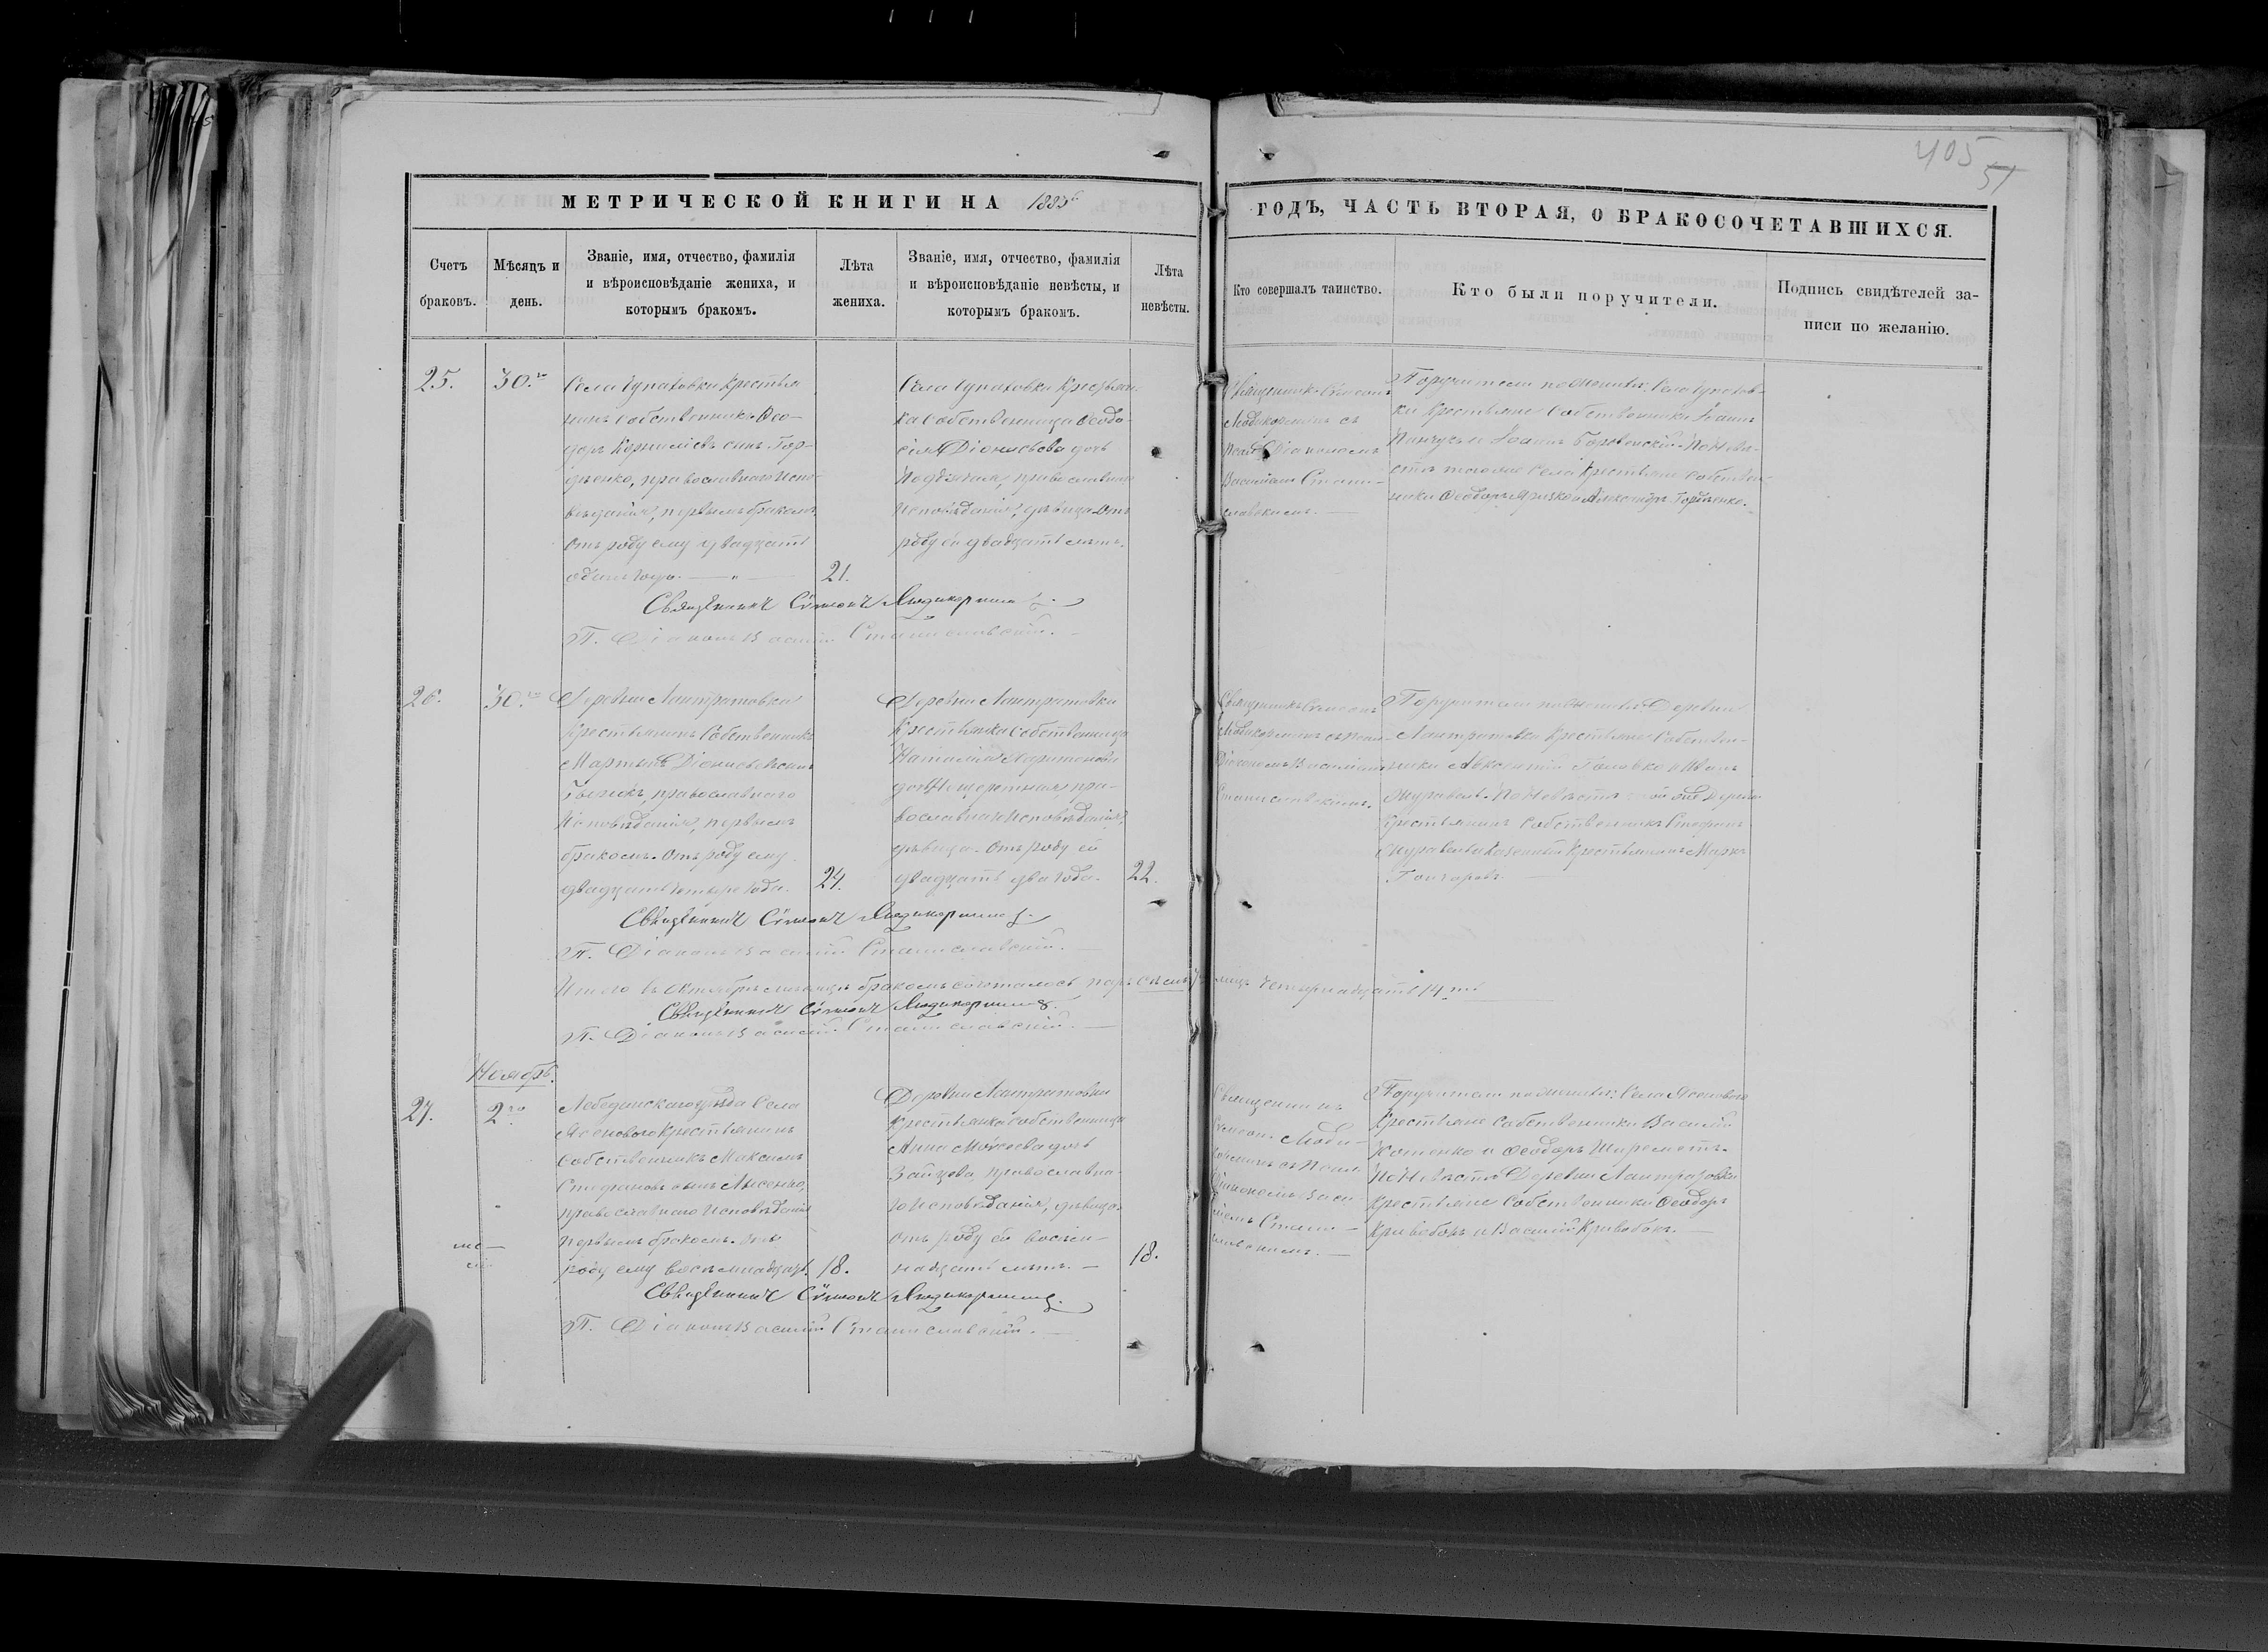 405
51
МЕТРИЧЕСКОЙ КНИГИ НА 1883
ГОДЪ, ЧАСТЬ ВТОРАЯ, О БРАКОСОЧЕТАВШИХСЯ.
Счетъ
браковъ.
Мѣсяцъ и
день.
Званіе, имя, отчество, фамилія
и вѣроисповѣданіе жениха, и
которымъ бракомъ.
Лѣта
жениха.
Званіе, имя, отчество, фамилія
и вѣроисповѣданіе невѣсты, и
которымъ бракомъ.
Лѣта
невѣсты.
Кто совершалъ таинство.
Кто были поручители.
Подпись свидѣтелей за-
писи по желанію.
25.
30.
Села Чупаховки Крестья
нинъ собственникъ Ѳео-
доръ Корниліевъ сынъ Гор-
діенко, православнаго Испо-
вѣданія, первымъ бракомъ.
Отъ роду ему двадцать
одинъ годъ.
21.
Села Чупаховки Крестьян-
ка собственница Ѳеодо-
сія Діонисьева дочь
православнаго
Исповѣданія, дѣвица. Отъ
роду ей двадцать лѣтъ.
Священникъ Симеонъ
съ
Псал. Діакономъ
Василіемъ Стани-
славскимъ.
Поручители по женихѣ: Села Чупахов-
ки Крестьяне собственники Іоаннъ
и Іоаннъ По Невѣ-
стѣ того же села Крестьяне собствен-
ники Ѳеодоръ и Александръ Гордіенко.
Священникъ Сѵмеонъ
П. Діаконъ Василій Станиславскій.
26.
30.
Деревни Лантратовки
Крестьянинъ Собственникъ
Мартинъ Діонисьевъ сынъ
православнаго
Исповѣданія, первымъ
бракомъ. Отъ роду ему
двадцать четыре года.
24.
Деревни Лантратовки
Крестьянка собственница
Наталія Харитонова
дочь пра-
вославнаго Исповѣданія,
дѣвица. Отъ роду ей
двадцать два года.
22.
Священникъ Симеонъ
съ Псал.
Діакономъ Василіемъ
Станиславскимъ.
Поручители по женихѣ: Деревни
Лантратовки Крестьяне собствен-
ники Авксентій Головко и Иванъ
Журавель. По Невѣстѣ той же Деревни
Крестьянинъ собственникъ Стефанъ
Журавель и Казенный Крестьянинъ Маркъ
Гончаровъ.
Священникъ Сѵмеонъ
П. Діаконъ Василій Станиславскій.
Итого въ Октябрѣ мѣсяцѣ бракомъ сочеталось паръ семь, лицъ четырнадцать 14.
Священникъ Сѵмеонъ
П. Діаконъ Василій Станиславскій.
Ноябрь.
27.
2.
Лебединскаго уѣзда Села
Ясеноваго Крестьянинъ
Собственникъ Максимъ
Стефановъ сынъ Лысенко,
православнаго Исповѣданія
первымъ бракомъ. Отъ
роду ему восемнадцать.
18.
Деревни Лантратовки
Крестьянка собственница
Анна Моѵсеева дочь
Зайцева, православна-
го Исповѣданія, дѣвица.
Отъ роду ей восем-
надцать лѣтъ.
18.
Священникъ
Симеонъ
съ Псал.
Діакономъ Васи-
ліемъ Стани-
славскимъ.
Поручители по женихѣ: Села Ясеноваго
Крестьяне собственники Василій
Котенко и Ѳеодоръ Шереметъ.
По Невѣстѣ Деревни Лантратовки
Крестьяне собственники Ѳеодоръ
Кривобокъ и Василій Кривобокъ.
Священникъ Сѵмеонъ
П. Діаконъ Василій Станиславскій.